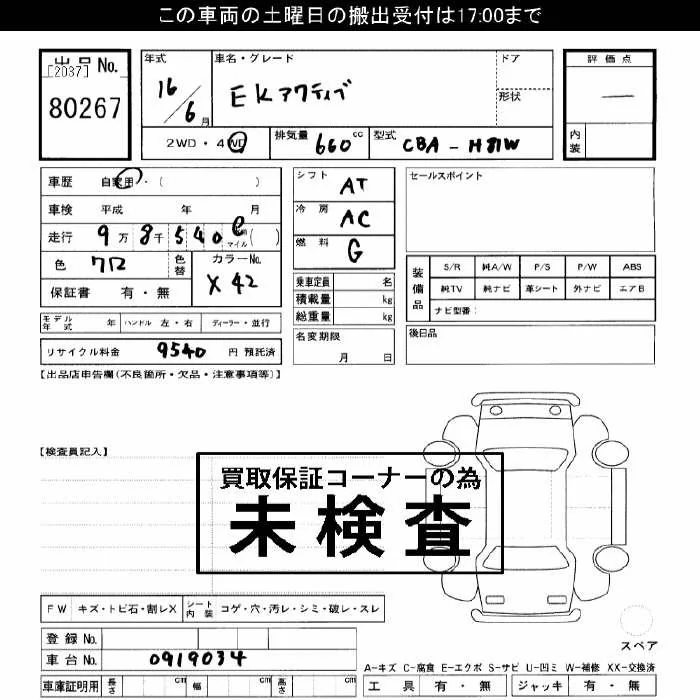 この車両の土曜日の搬出受付は17:00まで
出品No.
[2037]
80267
年式
16/6月
車名・グレード
EKアクティブ
ドア
形状
評価点
—
内装
2WD・4WD
排気量 660cc
型式 CBA-H81W
車歴 自家用・( )
車検 平成 年 月
走行 9万8千540 マイル( )
色 クロ
色替
カラーNo.
X42
保証書 有・無
シフト AT
冷房 AC
燃料 G
乗車定員 名
積載量 kg
総重量 kg
名変期限
月 日
セールスポイント
装備品
S/R 純A/W P/S P/W ABS
純TV 純ナビ 革シート 外ナビ エアB
ナビ型番:
後日品
モデル年式 年 ハンドル 左・右 ディーラー・並行
リサイクル料金 9540 円 預託済
【出品店申告欄(不良箇所・欠品・注意事項等)】
【検査員記入】
買取保証コーナーの為
未検査
FW キズ・トビ石・割レX シート内装 コゲ・穴・汚レ・シミ・破レ・スレ
登録No.
車台No. 0919034
車庫証明用 長さ cm 幅 cm 高さ cm
スペア
A-キズ C-腐食 E-エクボ S-サビ U-凹ミ W-補修 XX-交換済
工具 有・無 ジャッキ 有・無